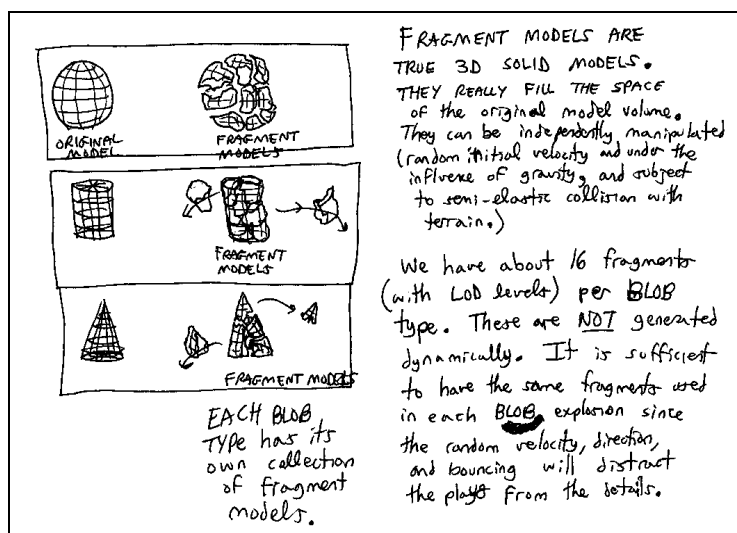 ORIGINAL
MODEL
FRAGMENT
MODELS
FRAGMENT
MODELS
FRAGMENT MODELS
EACH BLOB
TYPE has its
own collection
of fragment
models.
FRAGMENT MODELS ARE
TRUE 3D SOLID MODELS.
THEY REALLY FILL THE SPACE
of the original model volume.
They can be independently manipulated
(random initial velocity and under the
influence of gravity, and subject
to semi-elastic collision with
terrain.)
We have about 16 fragments
(with LOD levels) per BLOB
type. These are NOT generated
dynamically. It is sufficient
to have the same fragments used
in each BLOB explosion since
the random velocity, direction,
and bouncing will distract
the player from the details.